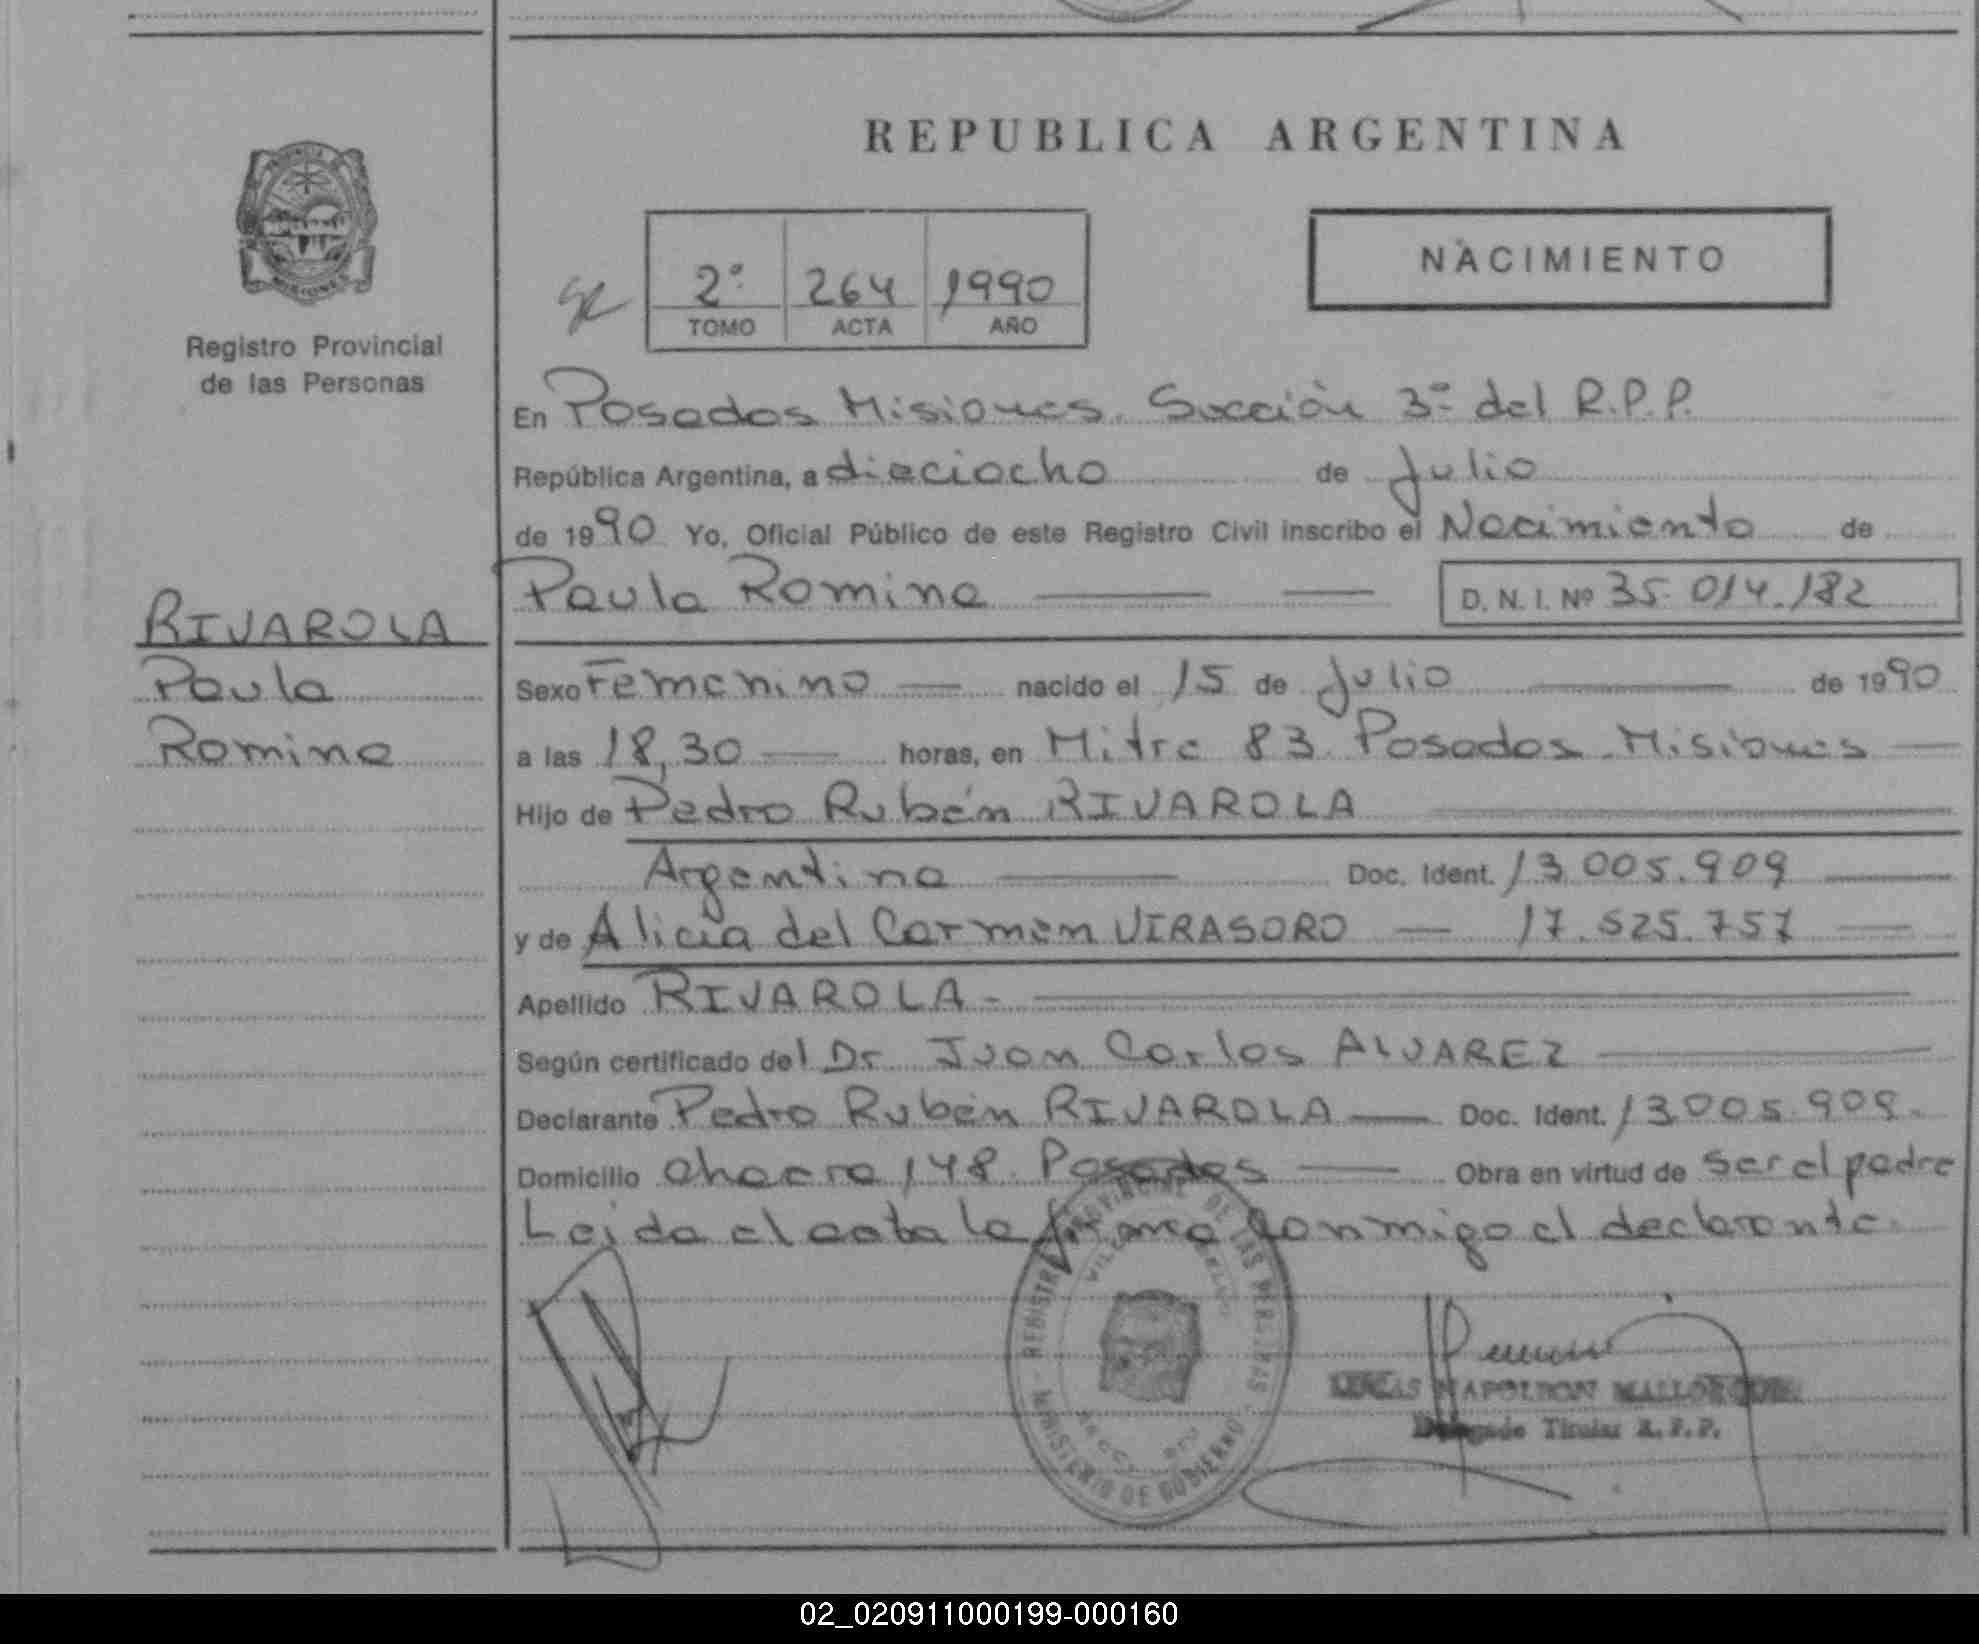 REPUBLICA ARGENTINA
NACIMIENTO
2º 264 1990
TOMO ACTA AÑO
Registro Provincial
de las Personas
En Posadas Misiones. Sección 3º del R.P.P.
República Argentina, a dieciocho de Julio
de 1990 Yo, Oficial Público de este Registro Civil inscribo el Nacimiento de
Paula Romina D. N. I. Nº 35.014.182
RIVAROLA
Paula
Romina
Sexo Femenino nacido el 15 de Julio de 1990
a las 18,30 horas, en Mitre 83 Posadas Misiones
Hijo de Pedro Rubén RIVAROLA
Argentina Doc. Ident. 13.005.909
y de Alicia del Carmen VIRASORO 17.525.757
Apellido RIVAROLA
Según certificado del Dr. Juan Carlos ALVAREZ
Declarante Pedro Rubén RIVAROLA Doc. Ident. 13.005.909.
Domicilio chacra 148 Posadas Obra en virtud de ser el padre
Leida el acta la firma conmigo el declarante.
REGISTRO PROVINCIAL DE LAS PERSONAS
MINISTERIO DE GOBIERNO
LUCAS NAPOLEON
Delegado Titular R.P.P.
02_020911000199-000160